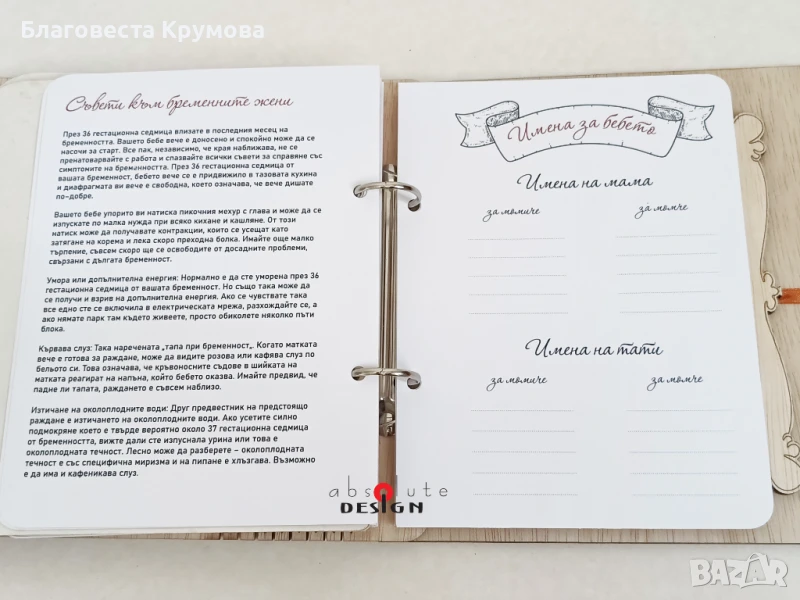 Благовеста Крумова
Съвети към бременните жени
През 36 гестационна седмица влизате в последния месец на
бременността. Вашето бебе вече е доносено и спокойно може да се
насочи за старт. Все пак, независимо, че края наближава, не се
пренатоварвайте с работа и спазвайте всички съвети за справяне със
симптомите на бременността. През 36 гестационна седмица от
вашата бременност, бебето вече се е придвижило в тазовата кухина
и диафрагмата ви вече е свободна, което означава, че вече дишате
по-добре.
Вашето бебе упорито ви натиска пикочния мехур с глава и може да се
изпускате по малка нужда при всяко кихане и кашляне. От този
натиск може да получавате контракции, които се усещат като
затягане на корема и лека скоро преходна болка. Имайте още малко
търпение, съвсем скоро ще се освободите от досадните проблеми,
свързани с дългата бременност.
Умора или допълнителна енергия: Нормално е да сте уморена през 36
гестационна седмица от вашата бременност. Но също така може да
се получи и взрив на допълнителна енергия. Ако се чувствате така
все едно сте се включила в електрическата мрежа, разхождайте се, а
ако нямате парк там където живеете, просто обиколете няколко пъти
блока.
Кървава слуз: Така наречената „тапа при бременност„. Когато матката
вече е готова за раждане, може да видите розова или кафява слуз по
бельото си. Това означава, че кръвоносните съдове в шийката на
матката реагират на напъна, който бебето оказва. Имайте предвид, че
падне ли тапата, раждането е съвсем наблизо.
Изтичане на околоплодните води: Друг предвестник на предстоящо
раждане е изтичането на околоплодните води. Ако усетите силно
подмокряне което е твърде вероятно около 37 гестационна седмица
от бременността, вижте дали сте изпуснала урина или това е
околоплодната течност. Лесно може да разберете – околоплодната
течност е със специфична миризма и на пипане е хлъзгава. Възможно
е да има и кафеникава слуз.
Имена за бебето
Имена на мама
за момиче за момче
Имена на тати
за момиче за момче
absolute
DESIGN
BAZAR